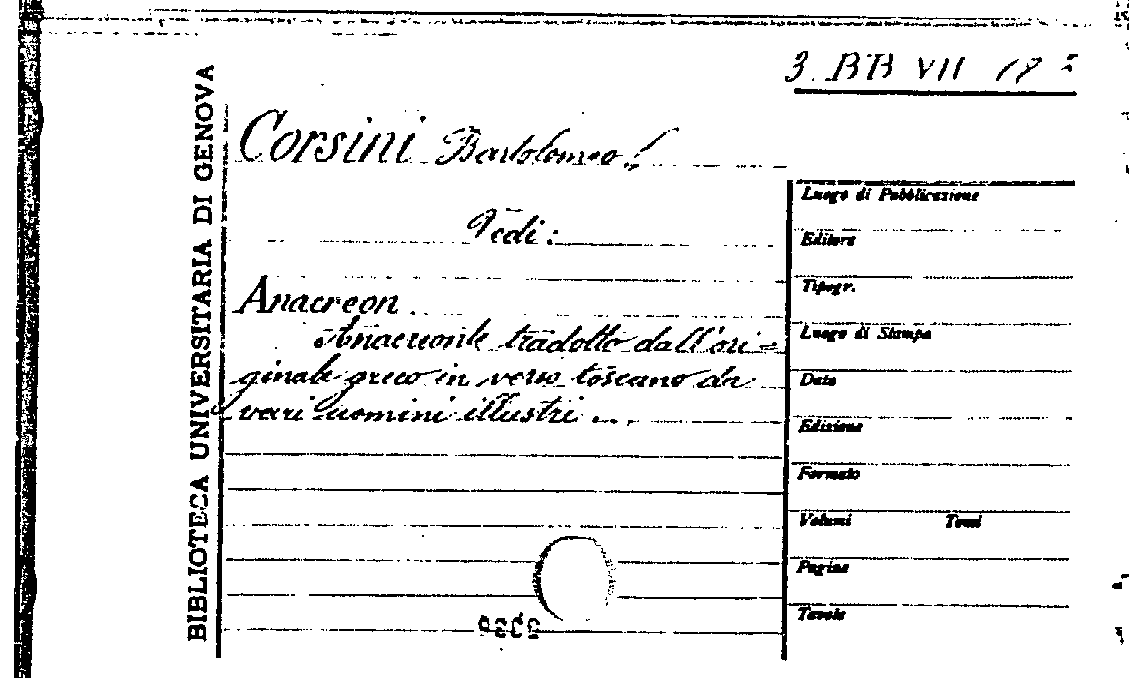 3. BB VII 18
BIBLIOTECA UNIVERSITARIA DI GENOVA
Corsini Bartolomeo
Vedi:
Anacreon
Anacreonte tradotto dall'ori=
ginale greco in verso toscano da
vari uomini illustri ...
Luogo di Pubblicazione
Editore
Tipogr.
Luogo di Stampa
Data
Edizione
Formato
Volumi Tomi
Pagine
Tavole